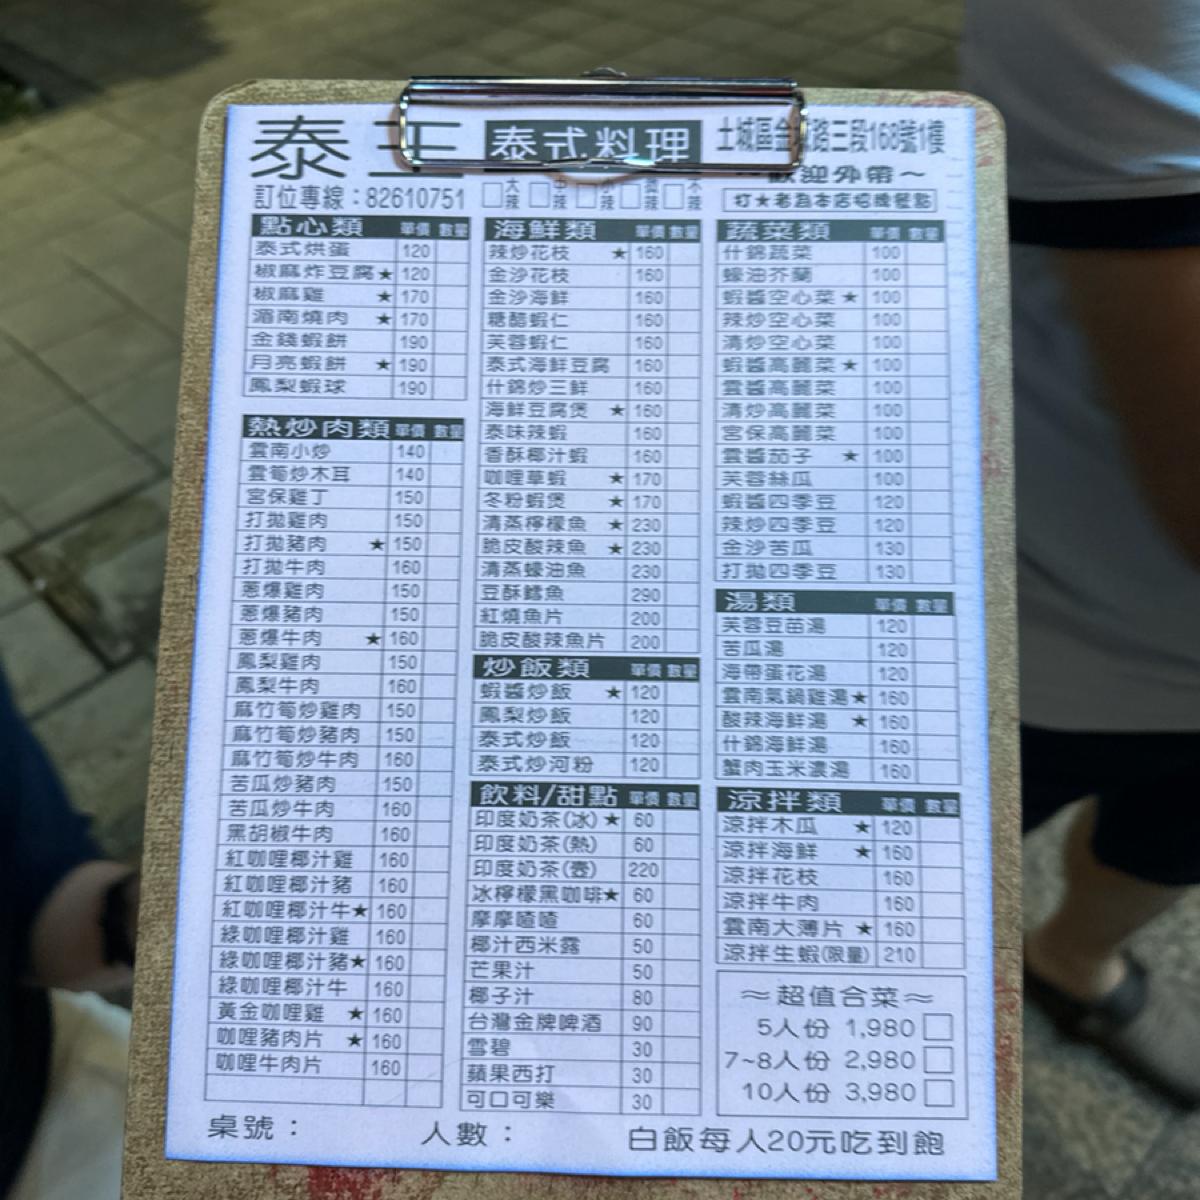 泰王
泰式料理
土城區金城路三段168號1樓
~歡迎外帶~
訂位專線：82610751
□大辣 □中辣 □小辣 □微辣 □不辣
打★者為本店招牌餐點
點心類 單價 數量
泰式烘蛋 120
椒麻炸豆腐★ 120
椒麻雞 ★ 170
湄南燒肉 ★ 170
金錢蝦餅 190
月亮蝦餅 ★ 190
鳳梨蝦球 190
熱炒肉類 單價 數量
雲南小炒 140
雲筍炒木耳 140
宮保雞丁 150
打拋雞肉 150
打拋豬肉 ★ 150
打拋牛肉 160
蔥爆雞肉 150
蔥爆豬肉 150
蔥爆牛肉 ★ 160
鳳梨雞肉 150
鳳梨牛肉 160
麻竹筍炒雞肉 150
麻竹筍炒豬肉 150
麻竹筍炒牛肉 160
苦瓜炒豬肉 150
苦瓜炒牛肉 160
黑胡椒牛肉 160
紅咖哩椰汁雞 160
紅咖哩椰汁豬 160
紅咖哩椰汁牛★ 160
綠咖哩椰汁雞 160
綠咖哩椰汁豬★ 160
綠咖哩椰汁牛 160
黃金咖哩雞 ★ 160
咖哩豬肉片 ★ 160
咖哩牛肉片 160
海鮮類 單價 數量
辣炒花枝 ★ 160
金沙花枝 160
金沙海鮮 160
糖醋蝦仁 160
芙蓉蝦仁 160
泰式海鮮豆腐 160
什錦炒三鮮 160
海鮮豆腐煲 ★ 160
泰味辣蝦 160
香酥椰汁蝦 160
咖哩草蝦 ★ 170
冬粉蝦煲 ★ 170
清蒸檸檬魚 ★ 230
脆皮酸辣魚 ★ 230
清蒸蠔油魚 230
豆酥鱈魚 290
紅燒魚片 200
脆皮酸辣魚片 200
炒飯類 單價 數量
蝦醬炒飯 ★ 120
鳳梨炒飯 120
泰式炒飯 120
泰式炒河粉 120
飲料/甜點 單價 數量
印度奶茶(冰)★ 60
印度奶茶(熱) 60
印度奶茶(壺) 220
冰檸檬黑咖啡★ 60
摩摩喳喳 60
椰汁西米露 50
芒果汁 50
椰子汁 80
台灣金牌啤酒 90
雪碧 30
蘋果西打 30
可口可樂 30
蔬菜類 單價 數量
什錦蔬菜 100
蠔油芥蘭 100
蝦醬空心菜 ★ 100
辣炒空心菜 100
清炒空心菜 100
蝦醬高麗菜 ★ 100
雲醬高麗菜 100
清炒高麗菜 100
宮保高麗菜 100
雲醬茄子 ★ 100
芙蓉絲瓜 100
蝦醬四季豆 120
辣炒四季豆 120
金沙苦瓜 130
打拋四季豆 130
湯類 單價 數量
芙蓉豆苗湯 120
苦瓜湯 120
海帶蛋花湯 120
雲南氣鍋雞湯★ 160
酸辣海鮮湯 ★ 160
什錦海鮮湯 160
蟹肉玉米濃湯 160
涼拌類 單價 數量
涼拌木瓜 ★ 120
涼拌海鮮 ★ 160
涼拌花枝 160
涼拌牛肉 160
雲南大薄片 ★ 160
涼拌生蝦(限量) 210
≈超值合菜≈
5人份 1,980□
7~8人份 2,980□
10人份 3,980□
桌號： 人數： 白飯每人20元吃到飽